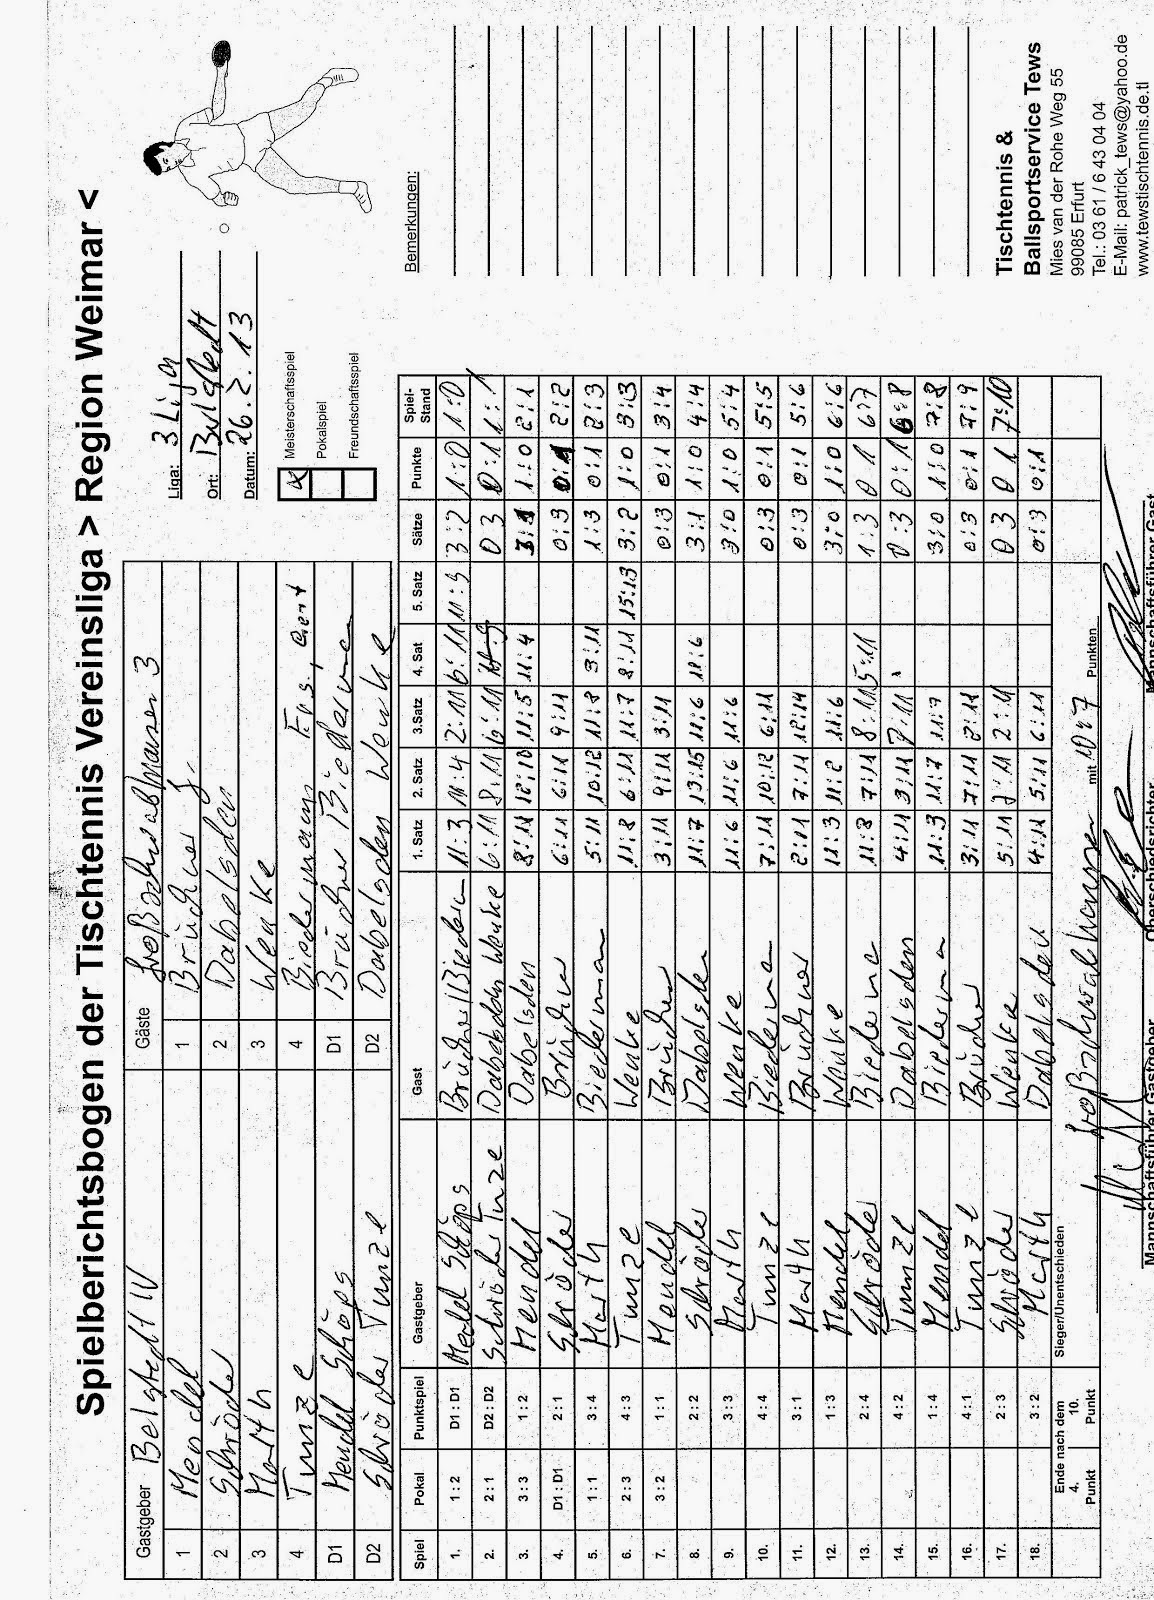 Spielberichtsbogen der Tischtennis Vereinsliga > Region Weimar <
Gastgeber Belstedt IV Gäste Großschwabhausen 3
1 Mendel 1 Brücher J.
2 Schröder 2 Dabelsden
3 Marth 3 Wenke
4 Tunze 4 Biedermann
D1 Mendel Schöps D1 Brücher Biederma
D2 Schröder Tunze D2 Dabelsden Wenke
Liga: 3 Liga
Ort:
Datum: 26.2.13
Meisterschaftsspiel
Pokalspiel
Freundschaftsspiel
Bemerkungen:
Spiel Pokal Punktspiel Gastgeber Gast 1. Satz 2. Satz 3.Satz 4. Sat 5. Satz Sätze Punkte Spiel-Stand
1. 1 : 2 D1 : D1 Mendel Schöps Brücher/Bieder 11:3 11:4 2:11 6:11 11:9 3:2 1:0 1:0
2. 2 : 1 D2 : D2 Schröder Tunze Dabelsden Wenke 6:11 8:11 6:11 0 3 0:1 1:1
3. 3 : 3 1 : 2 Mendel Dabelsden 8:11 12:10 11:5 11:4 3:1 1:0 2:1
4. D1 : D1 2 : 1 Schröder Brücher 6:11 6:11 9:11 0:3 0:1 2:2
5. 1 : 1 3 : 4 Marth Biederman 5:11 10:12 11:8 3:11 1:3 0:1 2:3
6. 2 : 3 4 : 3 Tunze Wenke 11:8 6:11 11:7 8:11 15:13 3:2 1:0 3:3
7. 3 : 2 1 : 1 Mendel Brücher 3:11 9:11 3:11 0:3 0:1 3:4
8. 2 : 2 Schröder Dabelsden 11:7 13:15 11:6 11:6 3:1 1:0 4:4
9. 3 : 3 Marth Wenke 11:6 11:6 11:6 3:0 1:0 5:4
10. 4 : 4 Tunze Biederma 7:11 10:12 6:11 0:3 0:1 5:5
11. 3 : 1 Marth Brücher 2:11 7:11 12:14 0:3 0:1 5:6
12. 1 : 3 Mendel Wenke 11:3 11:2 11:6 3:0 1:0 6:6
13. 2 : 4 Schröder Biederma 11:8 7:11 8:11 5:11 1:3 0 1 6:7
14. 4 : 2 Tunze Dabelsden 4:11 3:11 7:11 0:3 0:1 6:8
15. 1 : 4 Mendel Biederma 11:3 11:7 11:7 3:0 1:0 7:8
16. 4 : 1 Tunze Brücher 3:11 7:11 2:11 0:3 0:1 7:9
17. 2 : 3 Schröder Wenke 5:11 7:11 2:11 0 3 0 1 7:10
18. 3 : 2 Marth Dabelsden 4:11 5:11 6:11 0:3 0:1
Ende nach dem
4. 10.
Punkt Punkt
Sieger/Unentschieden Großschwabhausen mit 10:7 Punkten
Mannschaftsführer Gastgeber Oberschiedsrichter Mannschaftsführer Gast
Tischtennis &
Ballsportservice Tews
Mies van der Rohe Weg 55
99085 Erfurt
Tel.: 03 61 / 6 43 04 04
E-Mail: patrick_tews@yahoo.de
www.tewstischtennis.de.tl